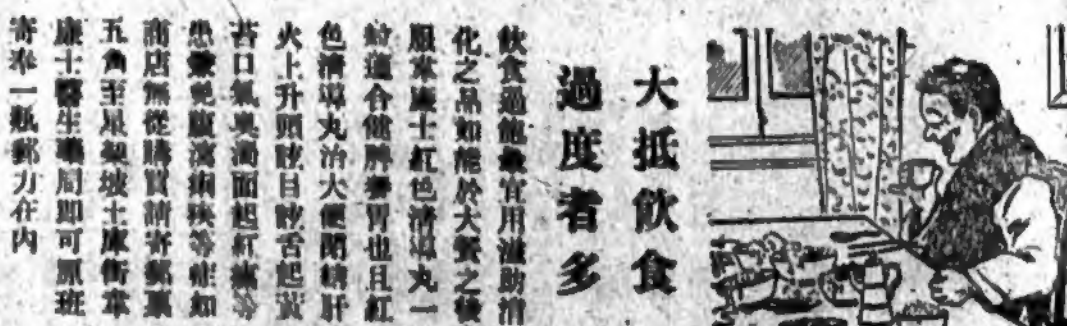 大抵飲食
過度者多
飲食過飽最宜用滋助消
化之品如能於大餐之後
服韋廉士紅色清導丸一
粒適合健脾養胃也且紅
色清導丸治大便閉結肝
火上升頭眩目眩舌起黃
苔口氣臭濁面起紅瘰等
患兼免腹瀉痢疾等症如
商店無從購買請寄郵票
五角至星架坡土庫街韋
廉士醫生藥局即可原班
寄奉一瓶郵力在內